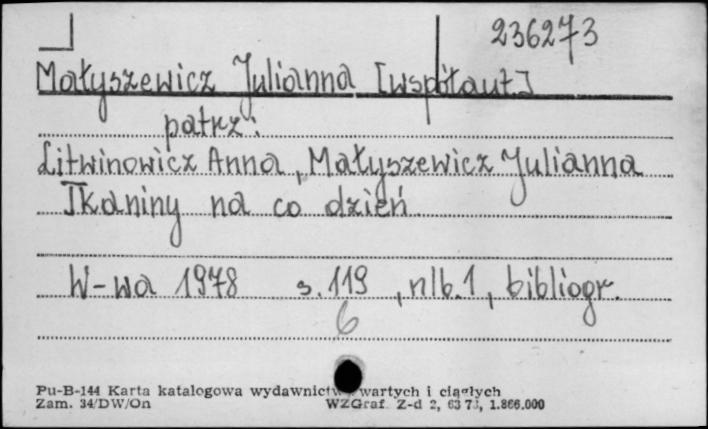 236273
Małyszewicz Julianna [współaut.]
patrz:
Litwinowicz Anna, Małyszewicz Julianna
Tkaniny na co dzień
W-wa 1978 s. 119, nlb. 1, bibliogr.
6
Pu-B-144 Karta katalogowa wydawnictw zwartych i ciągłych
Zam. 34/DW/On WZGraf. Z-d 2, 1.866.000